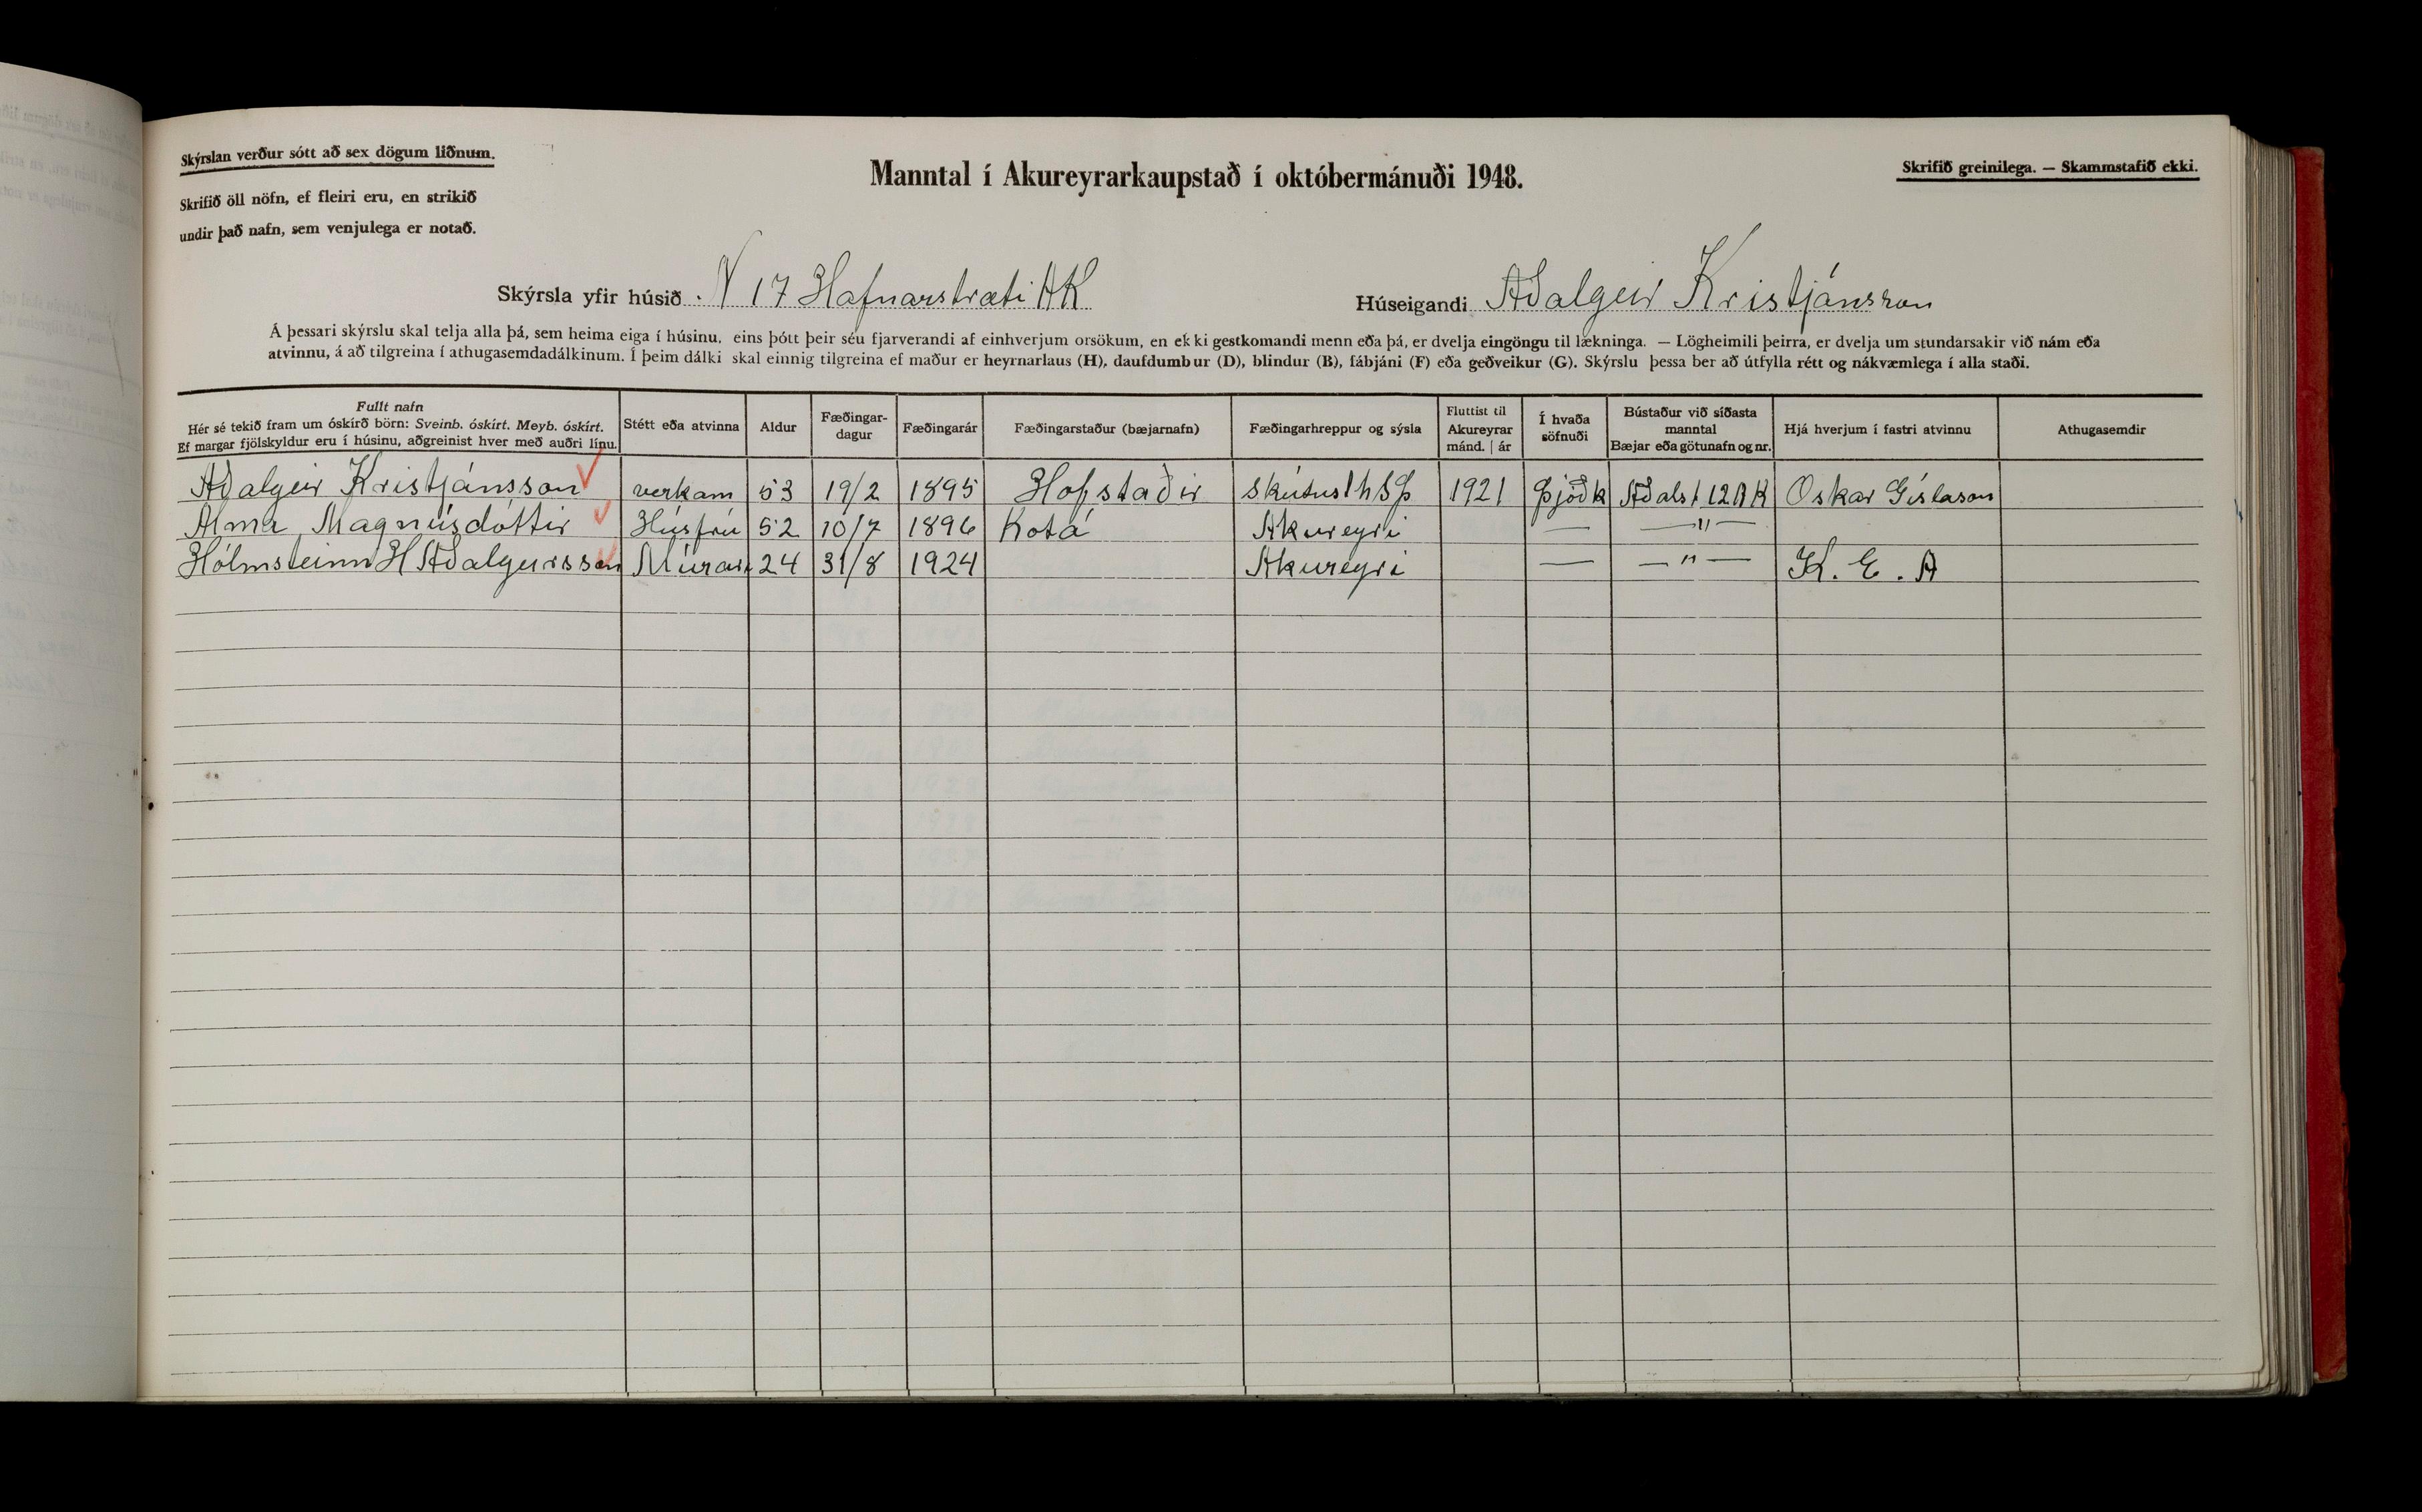 Skýrslan verður sótt að sex dögum liðnum.
Skrifið öll nöfn, ef fleiri eru, en strikið
undir það nafn, sem venjulega er notað.
Manntal í Akureyrarkaupstað í októbermánuði 1948.
Skrifið greinilega. — Skammstafið ekki.
Skýrsla yfir húsið N 17 Hafnarstræti AK
Húseigandi Aðalgeir Kristjánsson
Á þessari skýrslu skal telja alla þá, sem heima eiga í húsinu, eins þótt þeir séu fjarverandi af einhverjum orsökum, en ekki gestkomandi menn eða þá, er dvelja eingöngu til lækninga. — Lögheimili þeirra, er dvelja um stundarsakir við nám eða
atvinnu, á að tilgreina í athugasemdadálkinum. Í þeim dálki skal einnig tilgreina ef maður er heyrnarlaus (H), daufdumbur (D), blindur (B), fábjáni (F) eða geðveikur (G). Skýrslu þessa ber að útfylla rétt og nákvæmlega í alla staði.
Fullt nafn
Hér sé tekið fram um óskírð börn: Sveinb. óskírt. Meyb. óskírt.
Ef margar fjölskyldur eru í húsinu, aðgreinist hver með auðri línu.
Stétt eða atvinna
Aldur
Fæðingar-
dagur
Fæðingarár
Fæðingarstaður (bæjarnafn)
Fæðingarhreppur og sýsla
Fluttist til
Akureyrar
mánd. | ár
Í hvaða
söfnuði
Bústaður við síðasta
manntal
Bæjar eða götunafn og nr.
Hjá hverjum í fastri atvinnu
Athugasemdir
Aðalgeir Kristjánsson ✓ verkam 53 19/2 1895 Hofstaðir Skútusth S Þ 1921 Þjóðk Aðalst 12 A K Oskar Gíslason
Alma Magnúsdóttir ✓ Húsfrú 52 10/7 1896 Kotá Akureyri — —"—
Hólmsteinn H Aðalgeirsson ✓ Múrari 24 31/8 1924 Akureyri — —"— K. E. A